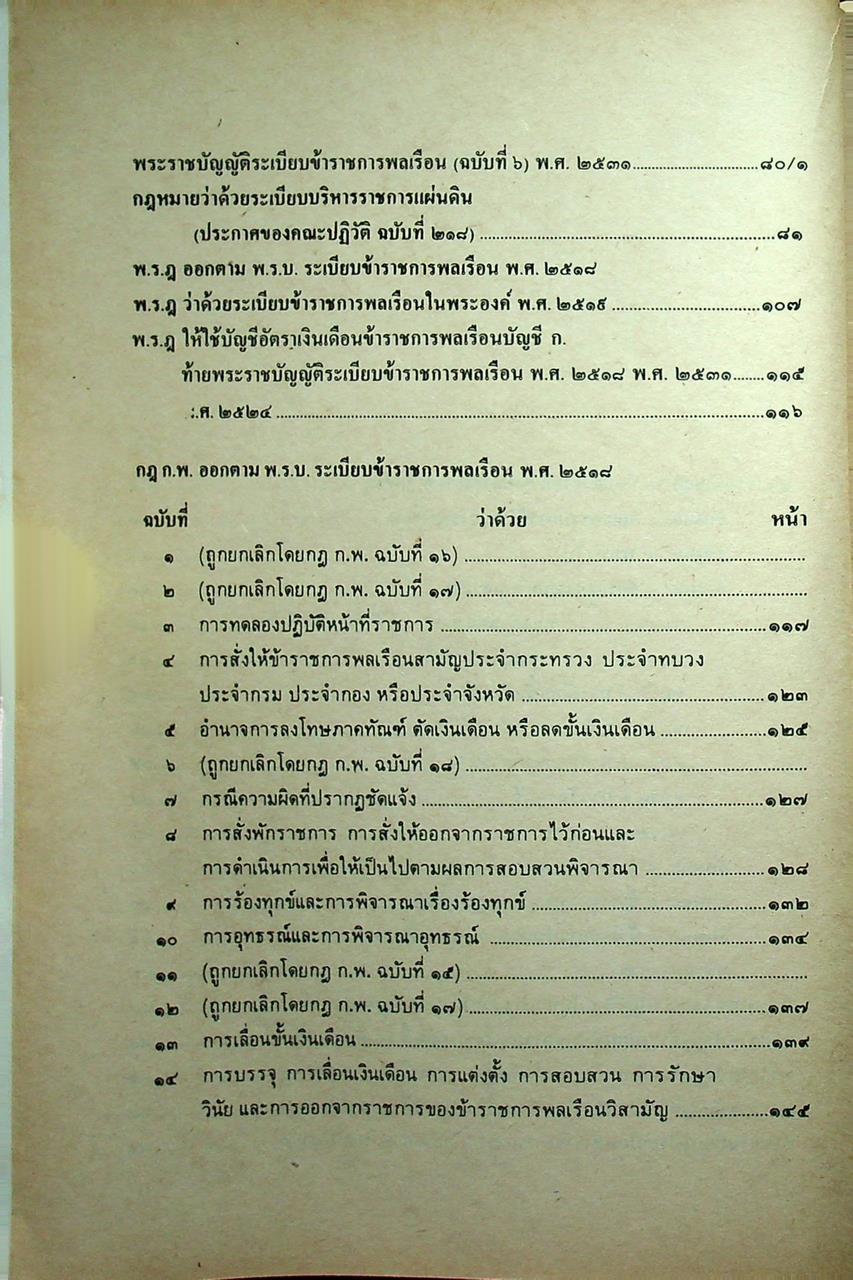 พระราชบัญญัติระเบียบข้าราชการพลเรือน (ฉบับที่ ๖) พ.ศ. ๒๕๓๑................................๘๐/๑
กฎหมายว่าด้วยระเบียบบริหารราชการแผ่นดิน
(ประกาศของคณะปฏิวัติ ฉบับที่ ๒๑๘) ................................................................๘๑
พ.ร.ฎ ออกตาม พ.ร.บ. ระเบียบข้าราชการพลเรือน พ.ศ. ๒๕๑๘
พ.ร.ฎ ว่าด้วยระเบียบข้าราชการพลเรือนในพระองค์ พ.ศ. ๒๕๑๙ ................................๑๐๗
พ.ร.ฎ ให้ใช้บัญชีอัตราเงินเดือนข้าราชการพลเรือนบัญชี ก.
ท้ายพระราชบัญญัติระเบียบข้าราชการพลเรือน พ.ศ. ๒๕๑๘ พ.ศ. ๒๕๓๑........๑๑๕
:.ศ. ๒๕๒๔ ................................................................................................๑๑๖
กฎ ก.พ. ออกตาม พ.ร.บ. ระเบียบข้าราชการพลเรือน พ.ศ. ๒๕๑๘
ฉบับที่ ว่าด้วย หน้า
๑ (ถูกยกเลิกโดยกฎ ก.พ. ฉบับที่ ๑๖) ................................................................
๒ (ถูกยกเลิกโดยกฎ ก.พ. ฉบับที่ ๑๗) ................................................................
๓ การทดลองปฏิบัติหน้าที่ราชการ ................................................................๑๑๗
๔ การสั่งให้ข้าราชการพลเรือนสามัญประจำกระทรวง ประจำทบวง
ประจำกรม ประจำกอง หรือประจำจังหวัด ................................................๑๒๓
๕ อำนาจการลงโทษภาคทัณฑ์ ตัดเงินเดือน หรือลดขั้นเงินเดือน ........................๑๒๕
๖ (ถูกยกเลิกโดยกฎ ก.พ. ฉบับที่ ๑๘) ................................................................
๗ กรณีความผิดที่ปรากฏชัดแจ้ง ................................................................๑๒๗
๘ การสั่งพักราชการ การสั่งให้ออกจากราชการไว้ก่อนและ
การดำเนินการเพื่อให้เป็นไปตามผลการสอบสวนพิจารณา ........................๑๒๘
๙ การร้องทุกข์และการพิจารณาเรื่องร้องทุกข์ ................................................๑๓๒
๑๐ การอุทธรณ์และการพิจารณาอุทธรณ์ ........................................................๑๓๔
๑๑ (ถูกยกเลิกโดยกฎ ก.พ. ฉบับที่ ๑๕) ................................................................
๑๒ (ถูกยกเลิกโดยกฎ ก.พ. ฉบับที่ ๑๗) ........................................................๑๓๗
๑๓ การเลื่อนขั้นเงินเดือน ................................................................................๑๓๙
๑๔ การบรรจุ การเลื่อนเงินเดือน การแต่งตั้ง การสอบสวน การรักษา
วินัย และการออกจากราชการของข้าราชการพลเรือนวิสามัญ ........................๑๔๕